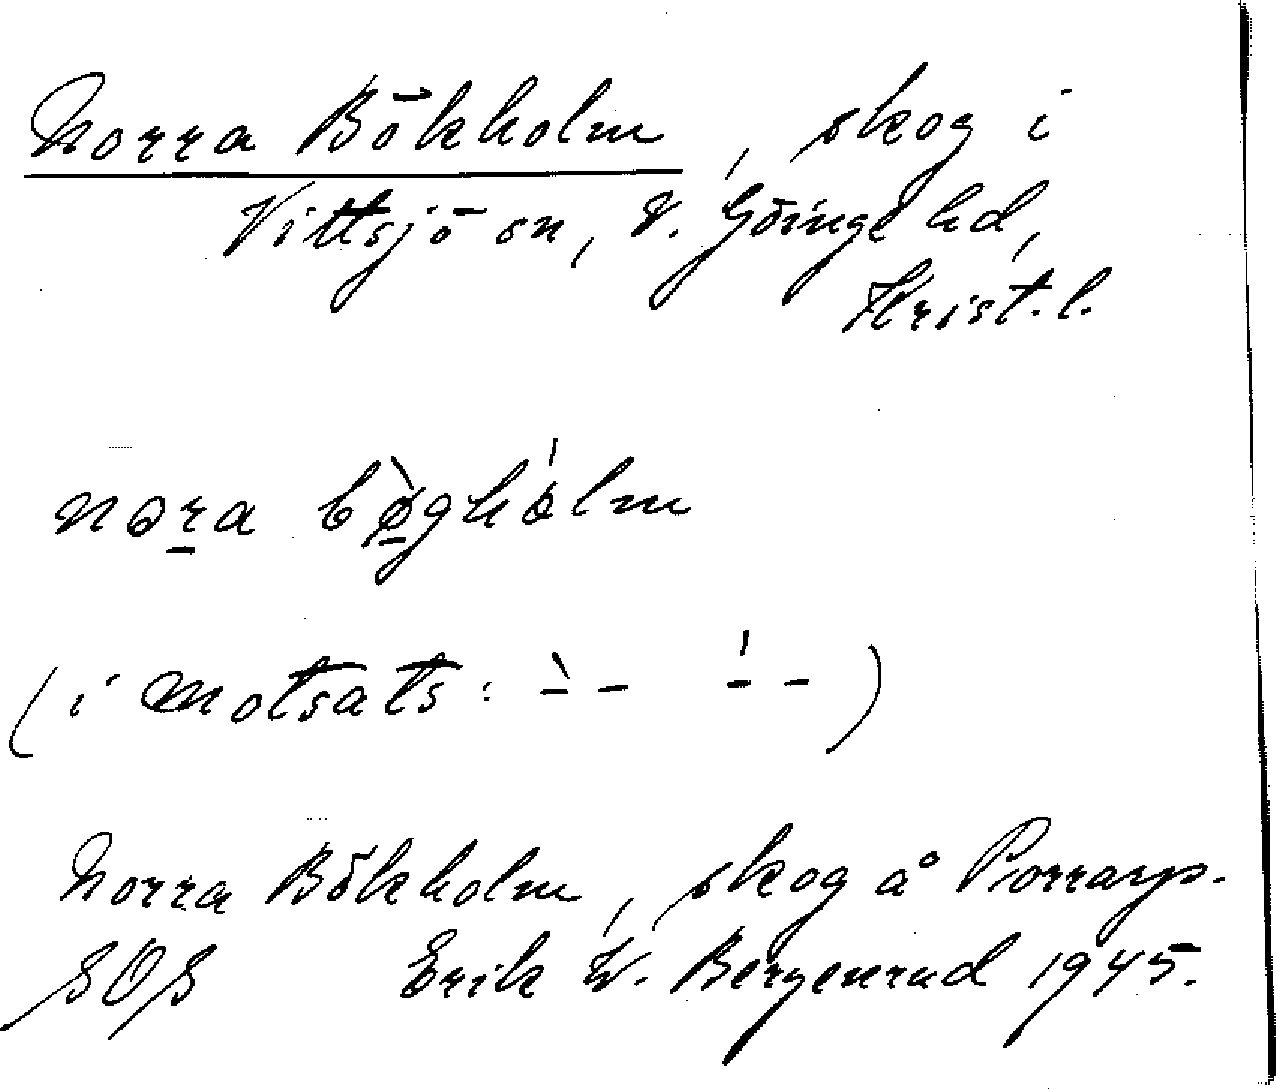 Norra Bökholm, skog i
Vittsjö sn, V. Göinge hd,
Krist. l.
nora bø̀ghólm
(i motsats: `- - ´- -)
Norra Bökholm, skog å Porrarp.
SOS Erik W. Bergenrud 1945.